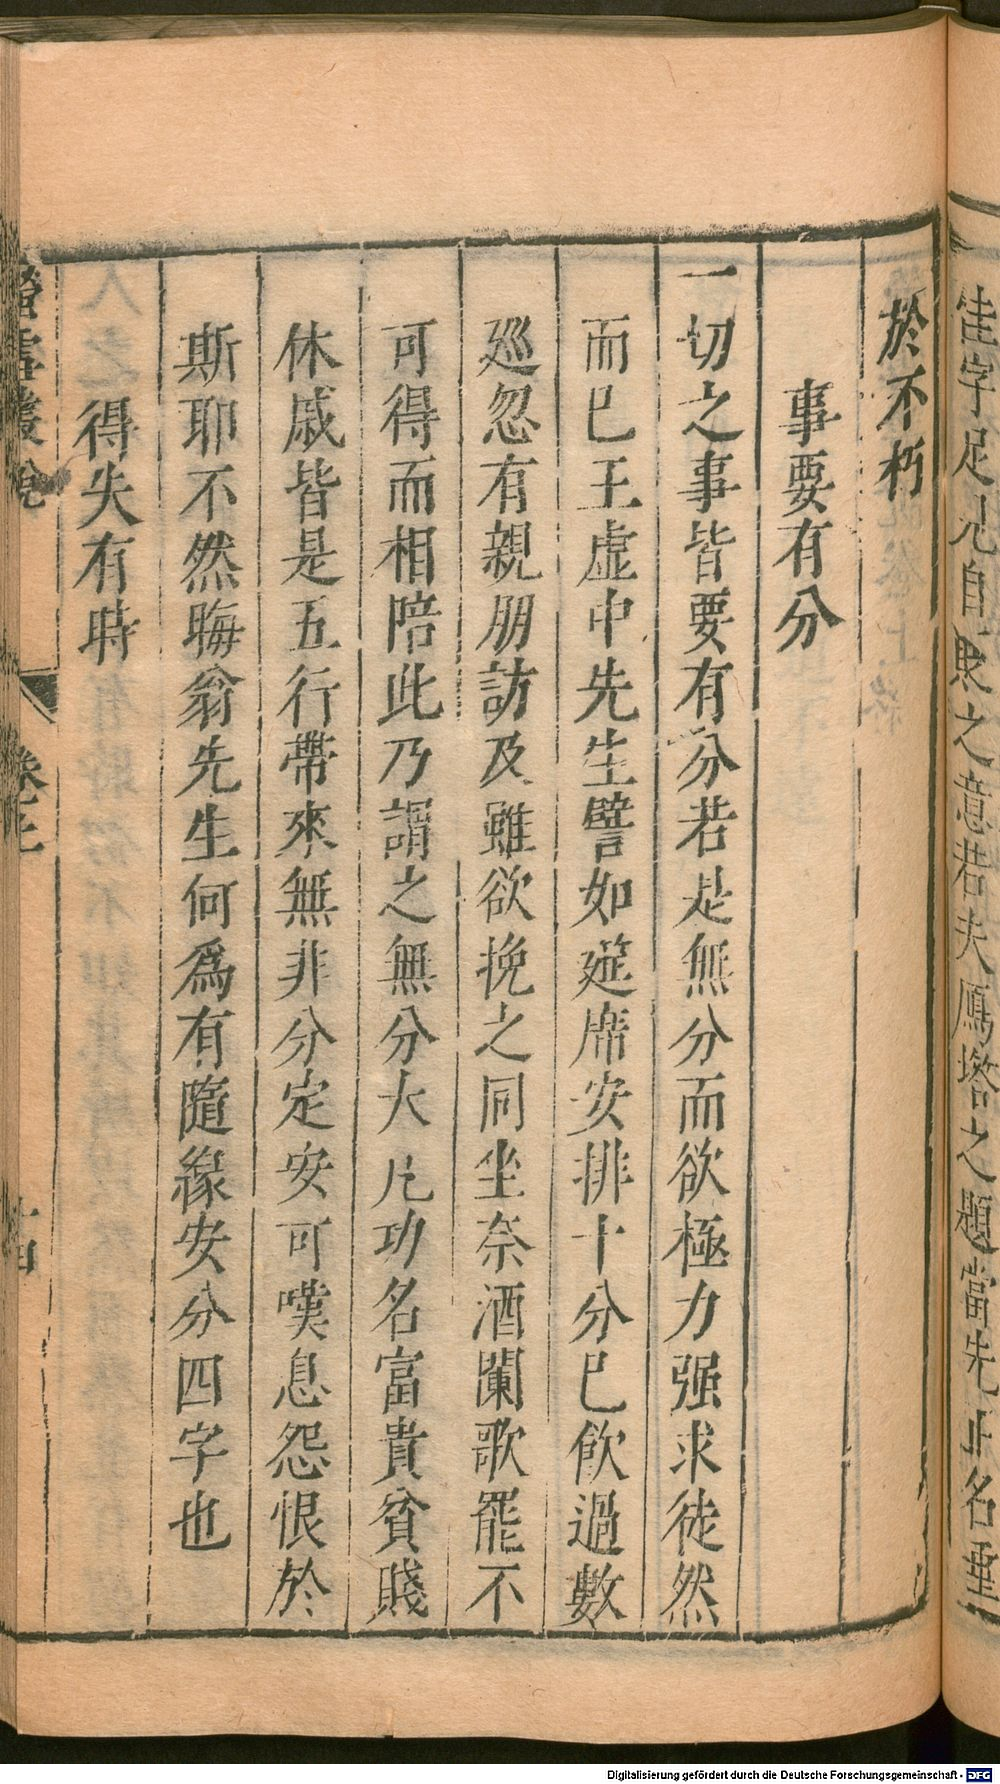 佳字足見自
之意若夫鴈塔之題當先正名重
於不朽
事要有分
一切之事皆要有分若是無分而欲極力强求徒然
而已王虛中先生譬如筵席安排十分已飲過數
廵忽有親朋訪及雖欲挽之同坐奈酒闌歌罷不
可得而相陪此乃謂之無分大凡功名富貴貧賤
休戚皆是五行帶來無非分定安可嘆息怨恨於
斯耶不然晦翁先生何爲有隨緣安分四字也
得失有時
螢雪叢說
卷之上
十四
Digitalisierung gefördert durch die Deutsche Forschungsgemeinschaft - DFG